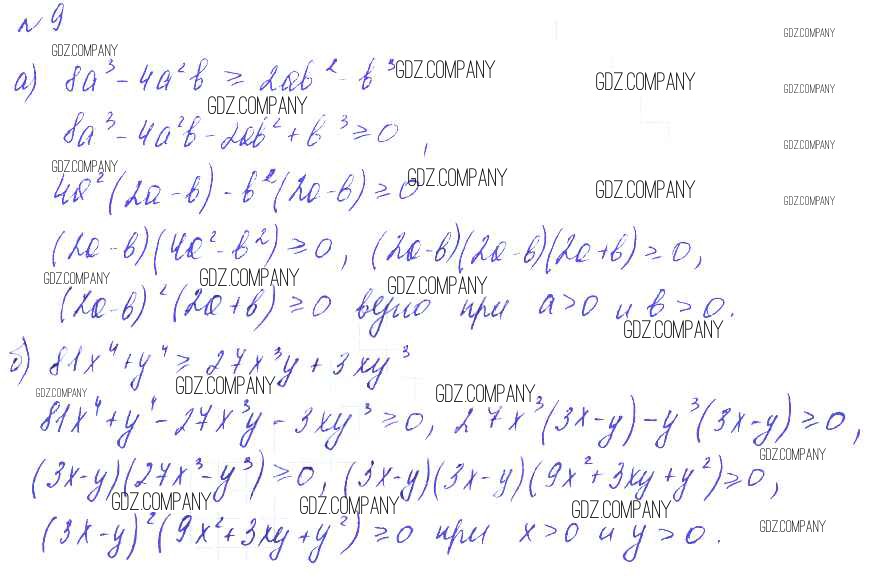 № 9
GDZ.COMPANY
GDZ.COMPANY
а) 8a³ - 4a²b ≥ 2ab² - b³
GDZ.COMPANY
GDZ.COMPANY
GDZ.COMPANY
GDZ.COMPANY
8a³ - 4a²b - 2ab² + b³ ≥ 0,
GDZ.COMPANY
GDZ.COMPANY
GDZ.COMPANY
GDZ.COMPANY
4a²(2a-b) - b²(2a-b) ≥ 0
GDZ.COMPANY
GDZ.COMPANY
(2a-b)(4a²-b²) ≥ 0, (2a-b)(2a-b)(2a+b) ≥ 0,
GDZ.COMPANY
GDZ.COMPANY
GDZ.COMPANY
(2a-b)²(2a+b) ≥ 0 верно при a>0 и b>0.
GDZ.COMPANY
б) 81x⁴ + y⁴ ≥ 27x³y + 3xy³
GDZ.COMPANY
GDZ.COMPANY
GDZ.COMPANY
81x⁴ + y⁴ - 27x³y - 3xy³ ≥ 0, 27x³(3x-y) - y³(3x-y) ≥ 0,
GDZ.COMPANY
(3x-y)(27x³-y³) ≥ 0, (3x-y)(3x-y)(9x²+3xy+y²) ≥ 0,
GDZ.COMPANY
GDZ.COMPANY
GDZ.COMPANY
GDZ.COMPANY
(3x-y)²(9x²+3xy+y²) ≥ 0 при x>0 и y>0.